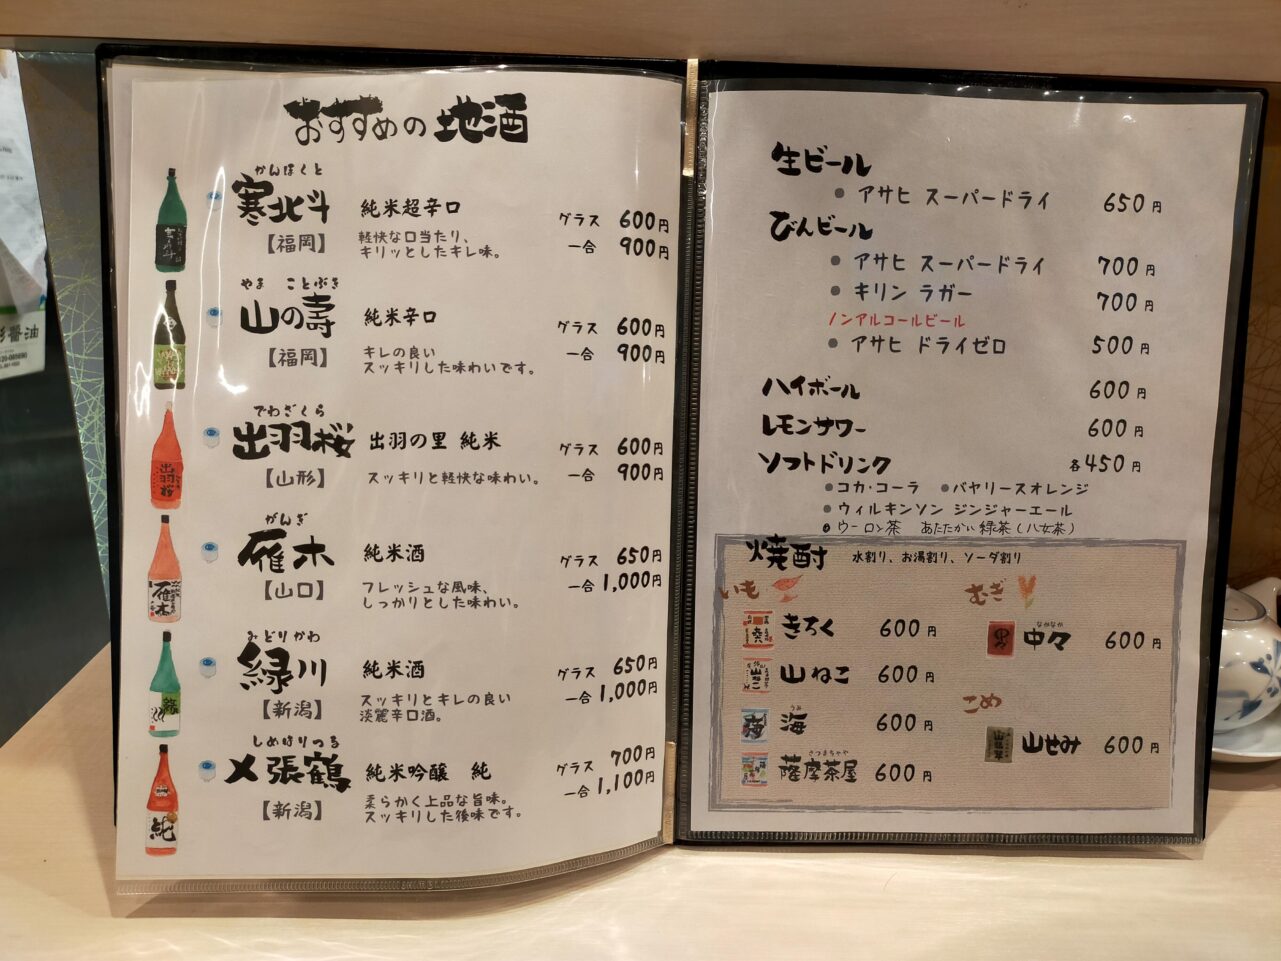 おすすめの地酒
かんほくと
寒北斗 純米超辛口 グラス 600円
【福岡】 軽快な口当たり、 一合 900円
キリッとしたキレ味。
やま ことぶき
山の壽 純米辛口 グラス 600円
【福岡】 キレの良い 一合 900円
スッキリした味わいです。
でわざくら
出羽桜 出羽の里 純米 グラス 600円
【山形】 スッキリと軽快な味わい。 一合 900円
がんぎ
雁木 純米酒 グラス 650円
【山口】 フレッシュな風味、 一合 1,000円
しっかりとした味わい。
みどりかわ
緑川 純米酒 グラス 650円
【新潟】 スッキリとキレの良い 一合 1,000円
淡麗辛口酒。
しめはりつる
〆張鶴 純米吟醸 純 グラス 700円
【新潟】 柔らかく上品な旨味。 一合 1,100円
スッキリした後味です。
生ビール
● アサヒ スーパードライ 650円
びんビール
● アサヒ スーパードライ 700円
● キリン ラガー 700円
ノンアルコールビール
● アサヒ ドライゼロ 500円
ハイボール 600円
レモンサワー 600円
ソフトドリンク 各450円
●コカ・コーラ ●バヤリースオレンジ
●ウィルキンソン ジンジャーエール
●ウーロン茶 あたたかい緑茶(八女茶)
焼酎 水割り、お湯割り、ソーダ割り
いも
きろく 600円
山ねこ 600円
うみ
海 600円
さつまちゃや
薩摩茶屋 600円
むぎ
なかなか
中々 600円
こめ
山せみ 600円